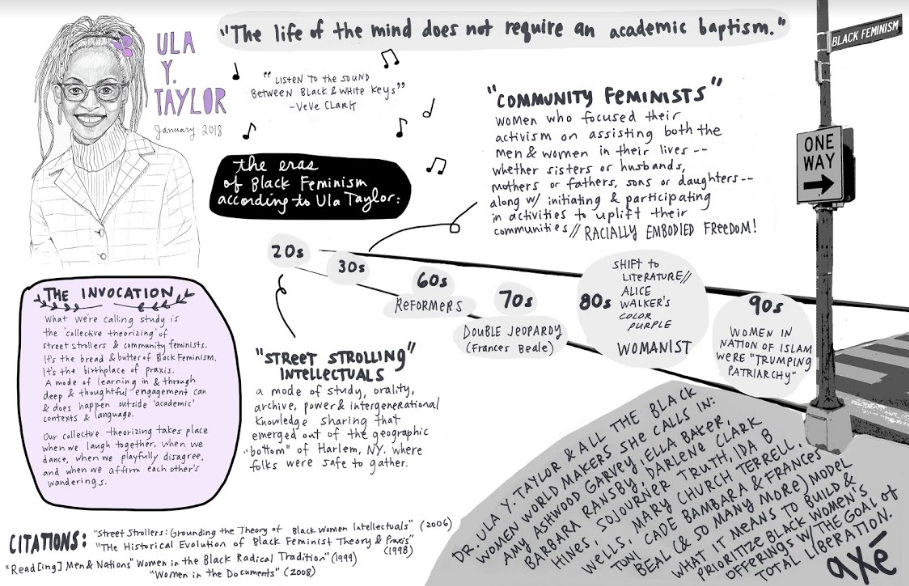 ULA
Y.
TAYLOR
January 2018
"The life of the mind does not require an academic baptism."
BLACK FEMINISM
ONE
WAY
"LISTEN TO THE SOUND
BETWEEN BLACK & WHITE KEYS"
-VèVè CLARK
the eras
of Black Feminism
according to Ula Taylor:
"COMMUNITY FEMINISTS"
women who focused their
activism on assisting both the
men & women in their lives--
whether sisters or husbands,
mothers or fathers, sons or daughters--
along w/ initiating & participating
in activities to uplift their
communities // RACIALLY EMBODIED FREEDOM!
20s
30s
60s
REFORMERS
70s
DOUBLE JEOPARDY
(Frances Beale)
80s
SHIFT TO
LITERATURE//
ALICE
WALKER'S
COLOR
PURPLE
WOMANIST
90s
WOMEN IN
NATION OF ISLAM
WERE "TRUMPING
PATRIARCHY"
THE INVOCATION
What we're calling study is
the 'collective theorizing' of
street strollers & community feminists.
It's the bread & butter of Black Feminism.
It's the birthplace of praxis.
A mode of learning in & through
deep & thoughtful engagement can
& does happen outside 'academic'
contexts & language.
Our collective theorizing takes place
when we laugh together, when we
dance, when we playfully disagree,
and when we affirm each other's
wanderings.
"STREET STROLLING"
INTELLECTUALS
a mode of study, orality,
archive, power & intergenerational
knowledge sharing that
emerged out of the geographic
"bottom" of Harlem, NY. where
folks were safe to gather.
DR. ULA Y. TAYLOR & ALL THE BLACK
WOMEN WORLD MAKERS SHE CALLS IN:
AMY ASHWOOD GARVEY, ELLA BAKER,
BARBARA RANSBY, DARLENE CLARK
HINES, SOJOURNER TRUTH, IDA B
WELLS, MARY CHURCH TERRELL,
TONI CADE BAMBARA & FRANCES
BEAL (& SO MANY MORE) MODEL
WHAT IT MEANS TO BUILD &
PRIORITIZE BLACK WOMEN'S
OFFERINGS W/ THE GOAL OF
TOTAL LIBERATION.
axé
CITATIONS: "Street Strollers: Grounding the Theory of Black Women Intellectuals" (2006)
"The Historical Evolution of Black Feminist Theory & Praxis" (1998)
"Read[ing] Men & Nations" Women in the Black Radical Tradition" (1999)
"Women in the Documents" (2008)